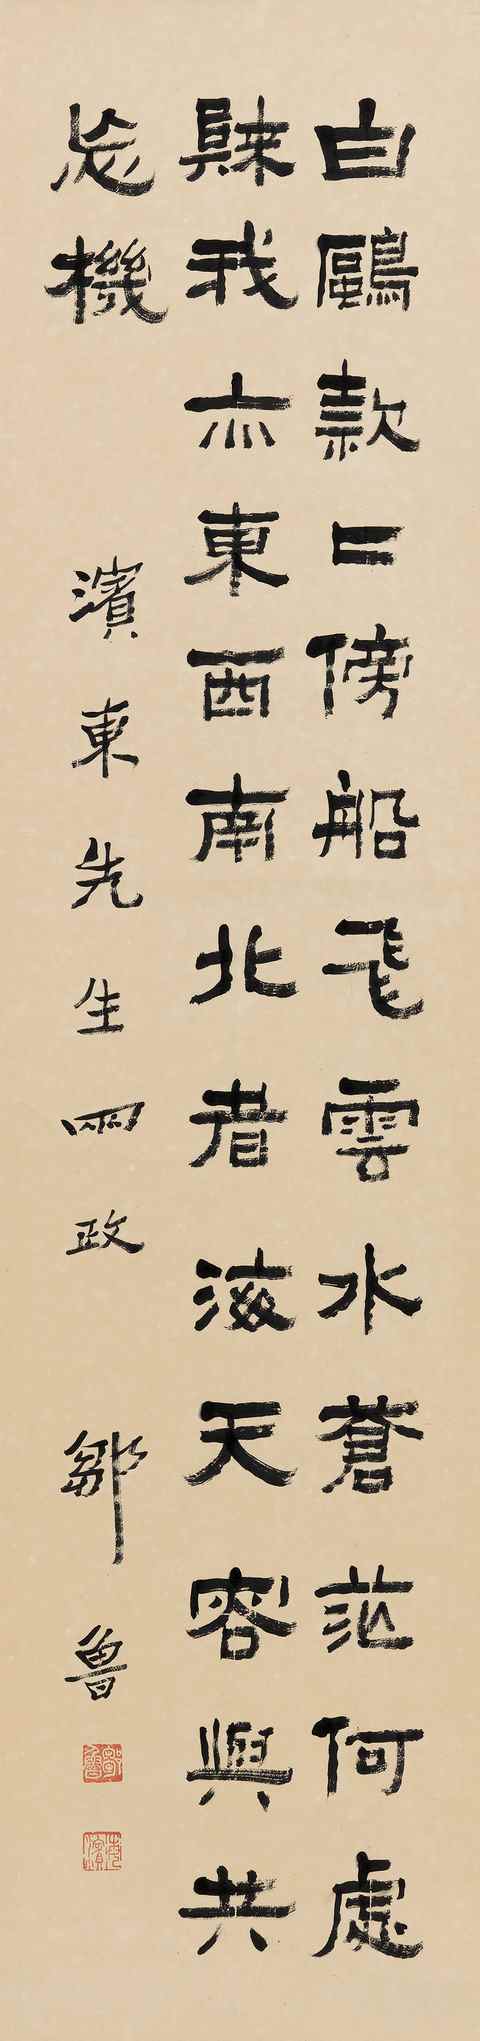 白鷗款〻傍船飛雲水蒼茫何處
歸我亦東西南北者海天容與共
忘機 濱東先生兩政 鄒魯
鄒魯
海濱